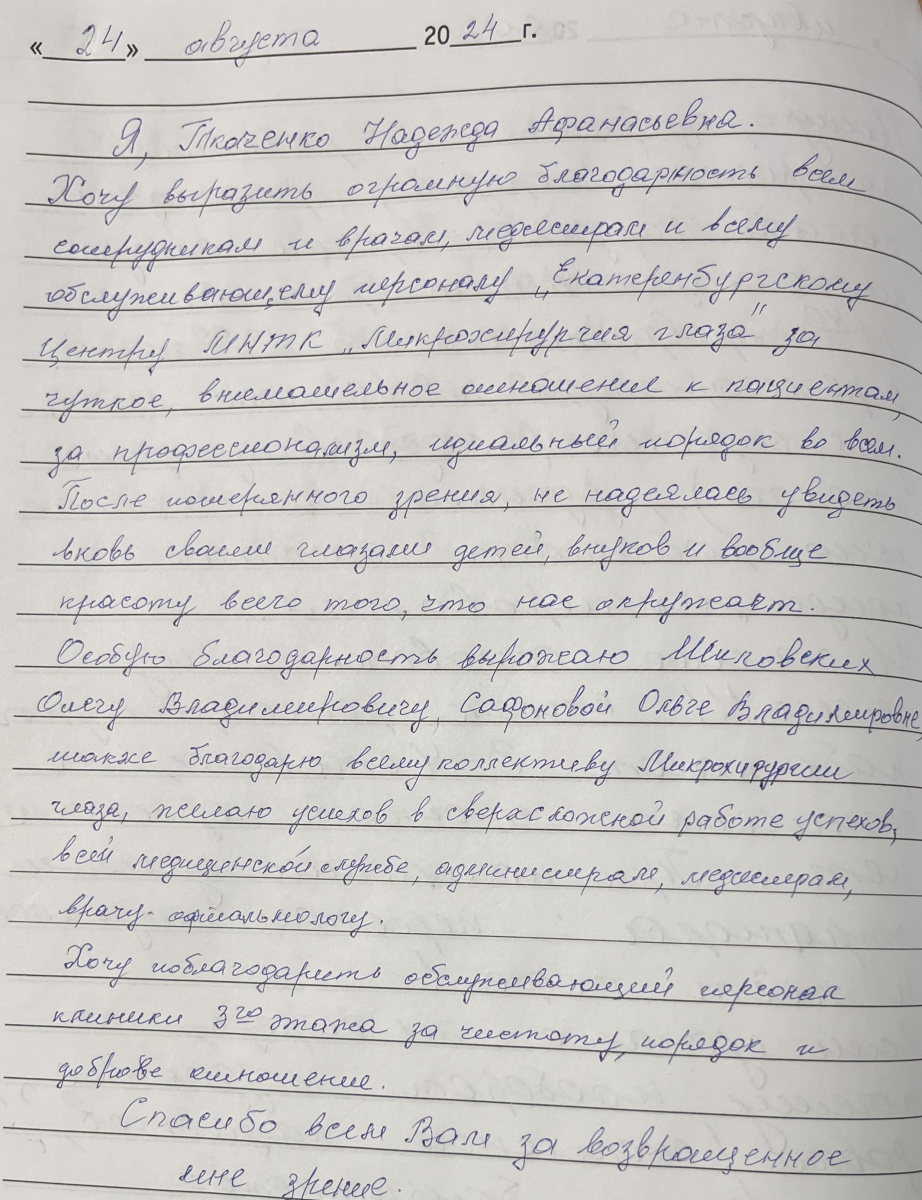 « 24 » августа 2024 г.
Я, Ткаченко Надежда Афанасьевна.
Хочу выразить огромную благодарность всем
сотрудникам и врачам, медсестрам и всему
обслуживающему персоналу „Екатеринбургскому
Центру МНТК „Микрохирургия глаза" за
чуткое, внимательное отношение к пациентам,
за профессионализм, идиальный порядок во всем.
После потерянного зрения, не надеялась увидеть
вновь своими глазами детей, внуков и вообще
красоту всего того, что нас окружает.
Особую благодарность выражаю Шиловских
Олегу Владимировичу, Сафоновой Ольге Владимировне,
также благодарю всему коллективу Микрохирургии
глаза, желаю успехов в сверхсложной работе успехов,
всей медицинской службе, администрам, медсестрам,
врачу-офтальмологу.
Хочу поблагодарить обслуживающий персонал
клиники 3го этажа за чистоту, порядок и
доброе отношение.
Спасибо всем Вам за возвращенное
мне зрение.